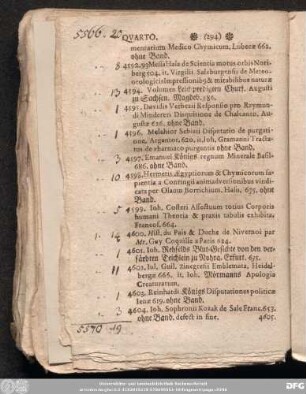 5566. 20
QUARTO. (294)
mentarium Medico Chymicum, Lubecæ 662.
ohne Band.
5 4192.93 Messahala de Scientia motus orbis Nori-
berg 504. it. Virgilii Salzburgensis de Meteo-
rologicis impressionib9 & mirabilibus naturæ
13 4194. Volumen Leich predigten Churf. Augusti
zu Sachsen. Magdeb. 586.
1 4195. Davidis Verbezii Responsio pro Raymun-
di Mindereri Disquisitione de Chalcantis, Au-
gustæ 626. ohne Band.
1 4196. Melchior Sebizii Disputatio de purgati-
one, Argentor. 620. it. Joh. Gramanni Tracta-
tus de pharmaco purgantis ohne Band.
3 4197. Emanuel Königs regnum Minerale Basil.
686. ohne Band.
10 4198. Hermetis Ægyptiorum & Chymicorum sa-
pientia a Conringii animadversionibus vindi-
cata per Olaum Borrichium. Hafn. 675. ohne
Band.
5 4199. Joh. Costæi Affectuum totius Corporis
humani Theoria & praxis tabulis exhibita,
Francof. 664.
14 4600. Hist. du Pais & Duche de Nivernoi par
Mr. Guy Coquille a Paris 624.
1 4601. Joh. Rebholds Blut-Gesichte von den ver-
färbten Teichlein zu Rohra. Erfurt. 675.
11 4602. Joh. Guil. Zincgrefii Emblemata, Heidel-
berge 666. it. Joh. Mörmanni Apologia
Creaturarum.
1 4603. Reinhardi Königs Disputationes politicæ
Jenæ 619. ohne Band.
3 4604. Joh. Sophronii Kozak de Sale Franc. 657.
ohne Band. defect in fine. 4605.
5570 19.